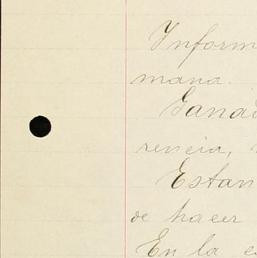 Inform
mana.
Ganad
rencia,
Estan
de hacer
En la e